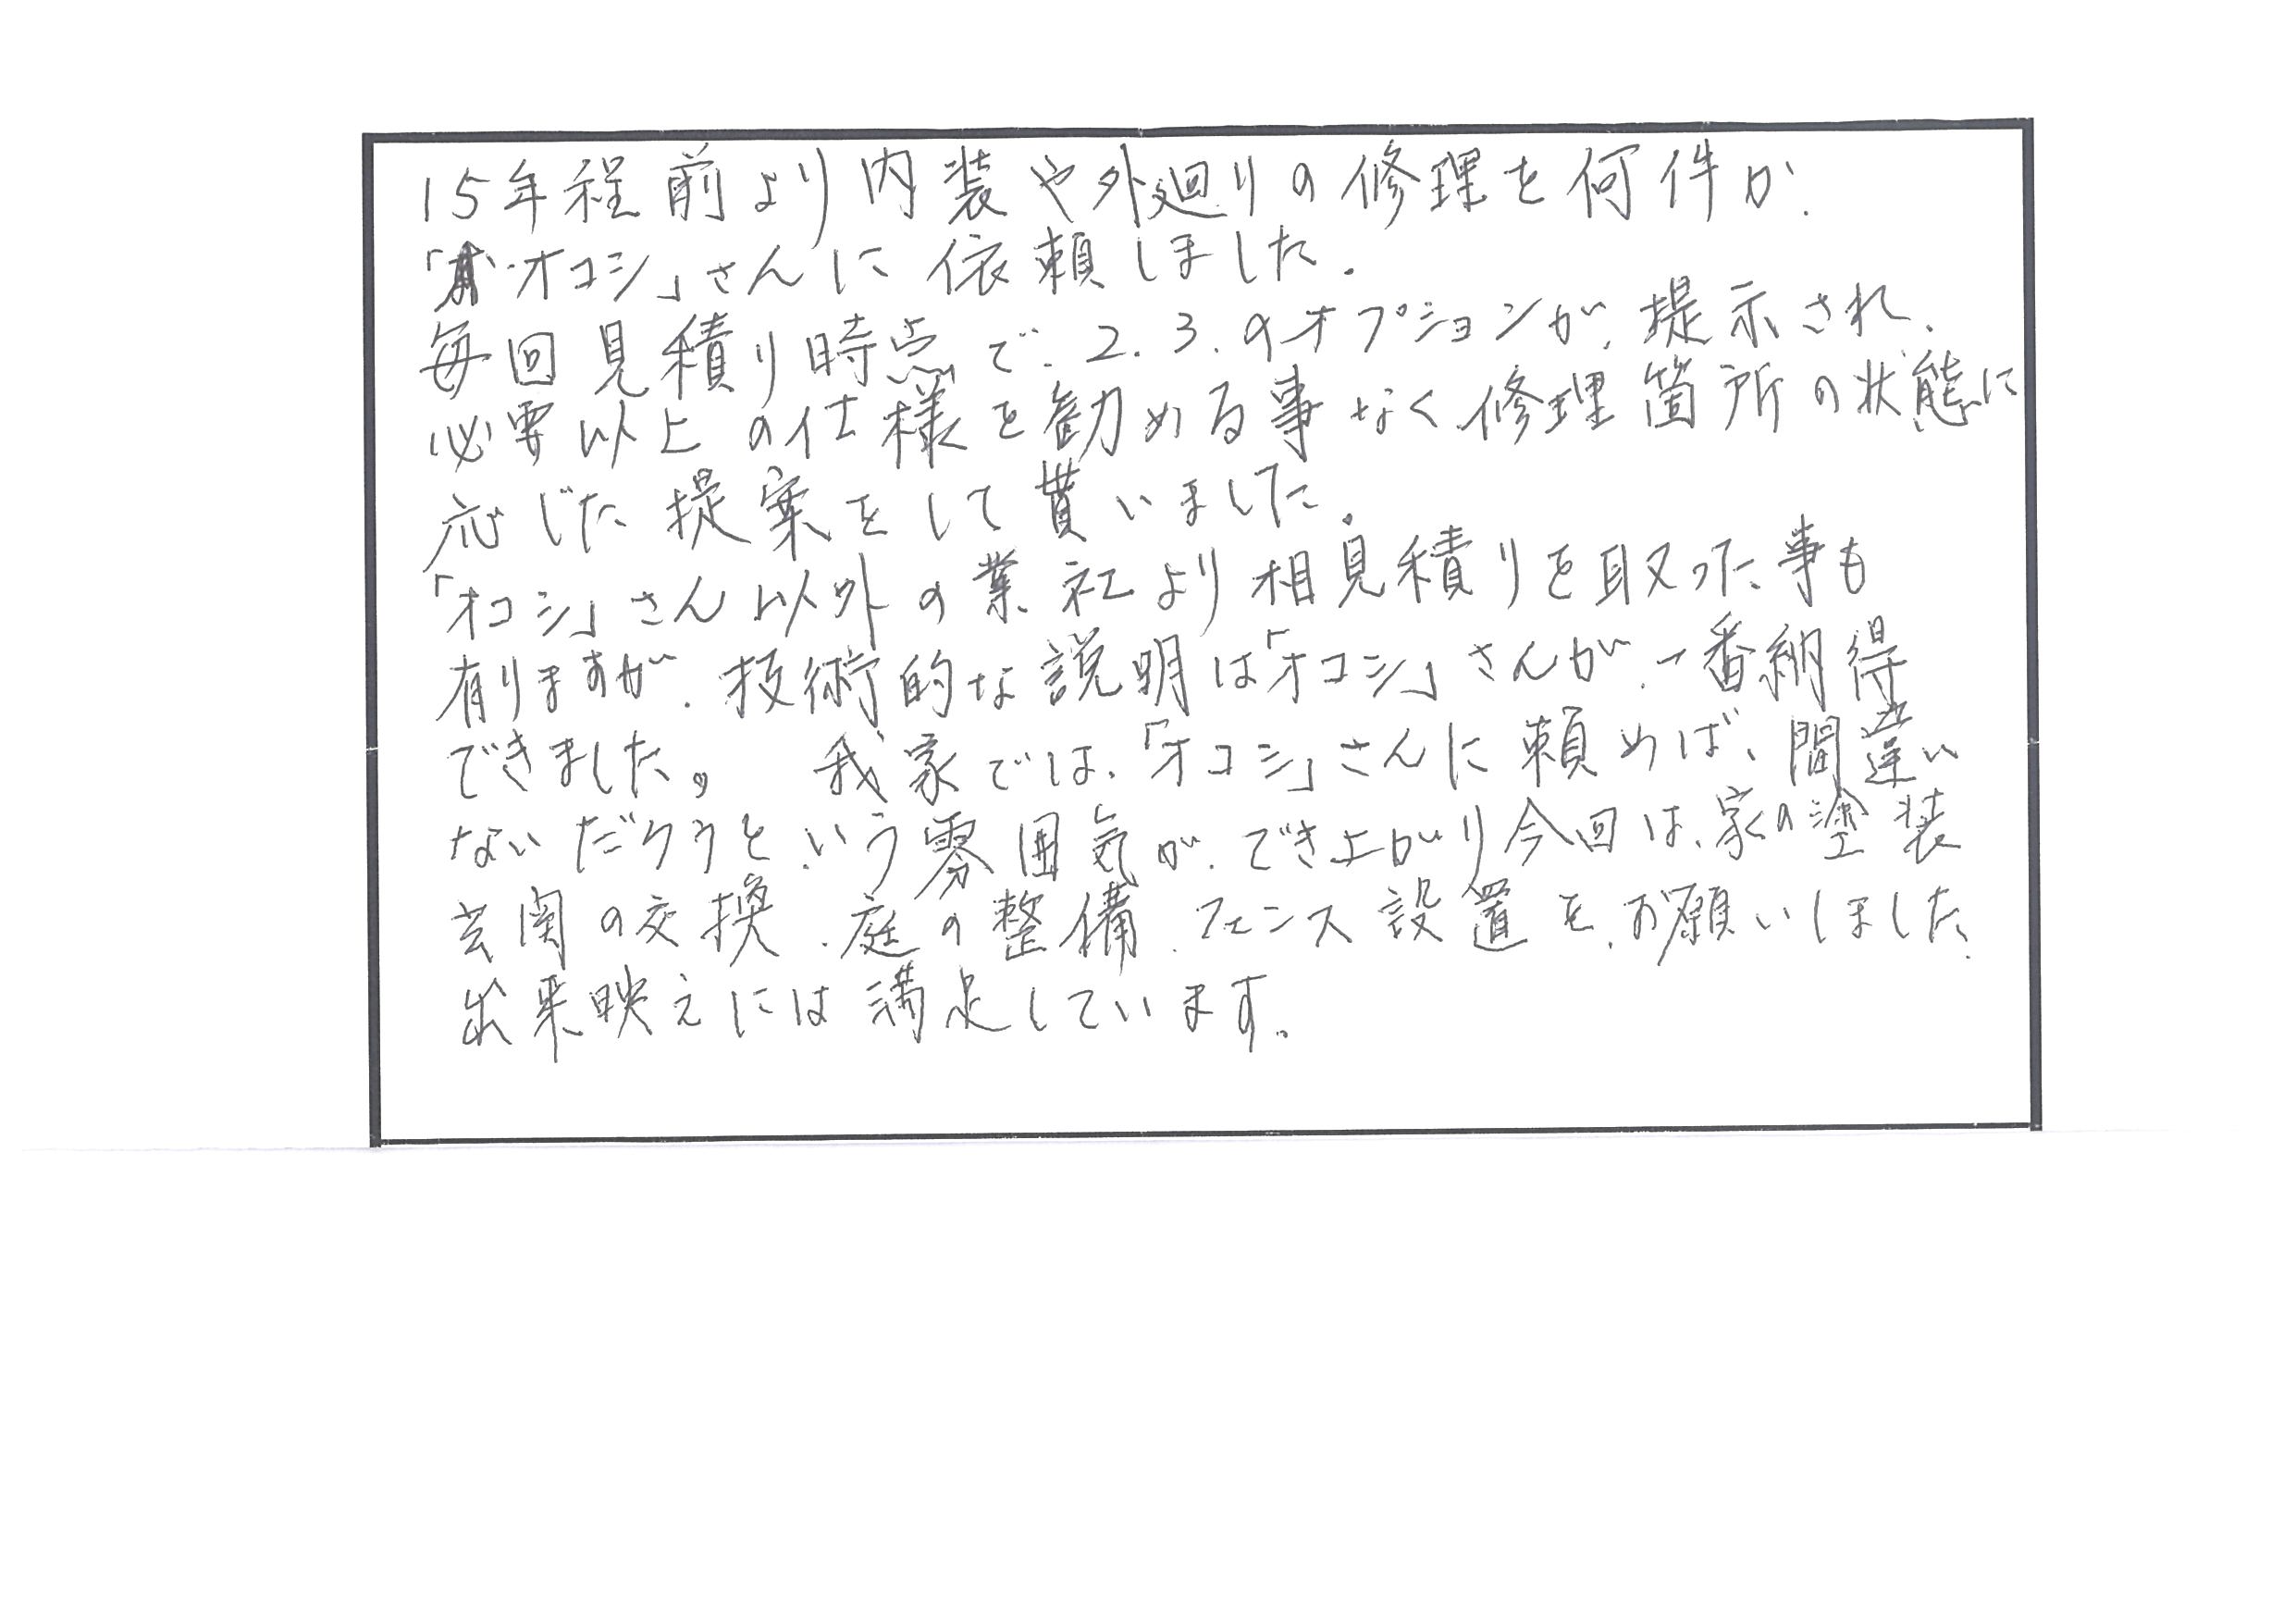 15年程前より内装や外廻りの修理を何件か、
「オコシ」さんに依頼しました。
毎回見積り時点で、2、3、のオプションが、提示され、
必要以上の仕様を勧める事なく修理箇所の状態に
応じた提案をして貰いました。
「オコシ」さん以外の業社より相見積りを取った事も
有りますが、技術的な説明は「オコシ」さんが、一番納得
できました。 我家では、「オコシ」さんに頼めば、間違い
ないだろうと、いう雰囲気が、でき上がり今回は、家の塗装
玄関の交換、庭の整備、フェンス設置を、お願いしました、
出来映えには満足しています。